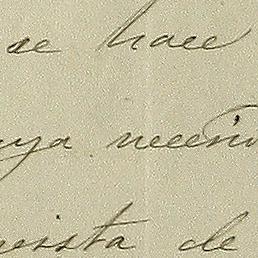 se hace
uya necesi
uista de